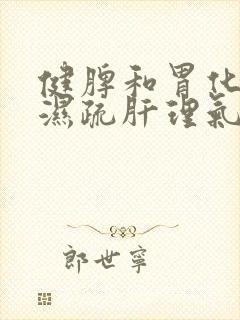 健脾和胃化
濕疏肝理氣
郎世寧